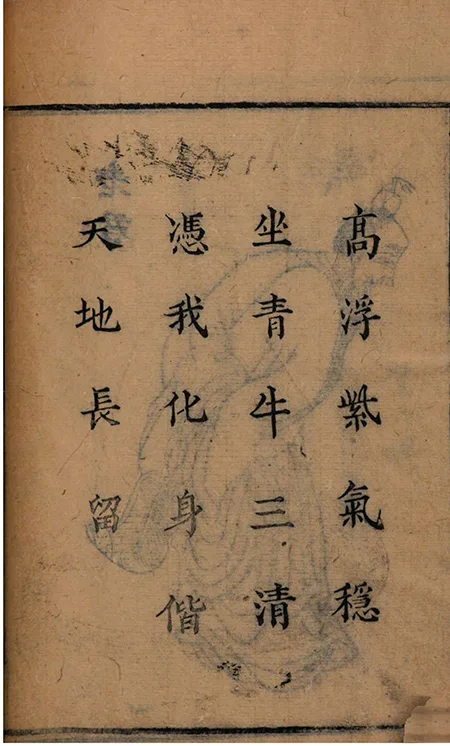 高浮紫氣穩
坐青牛三清
憑我化身偕
天地長留